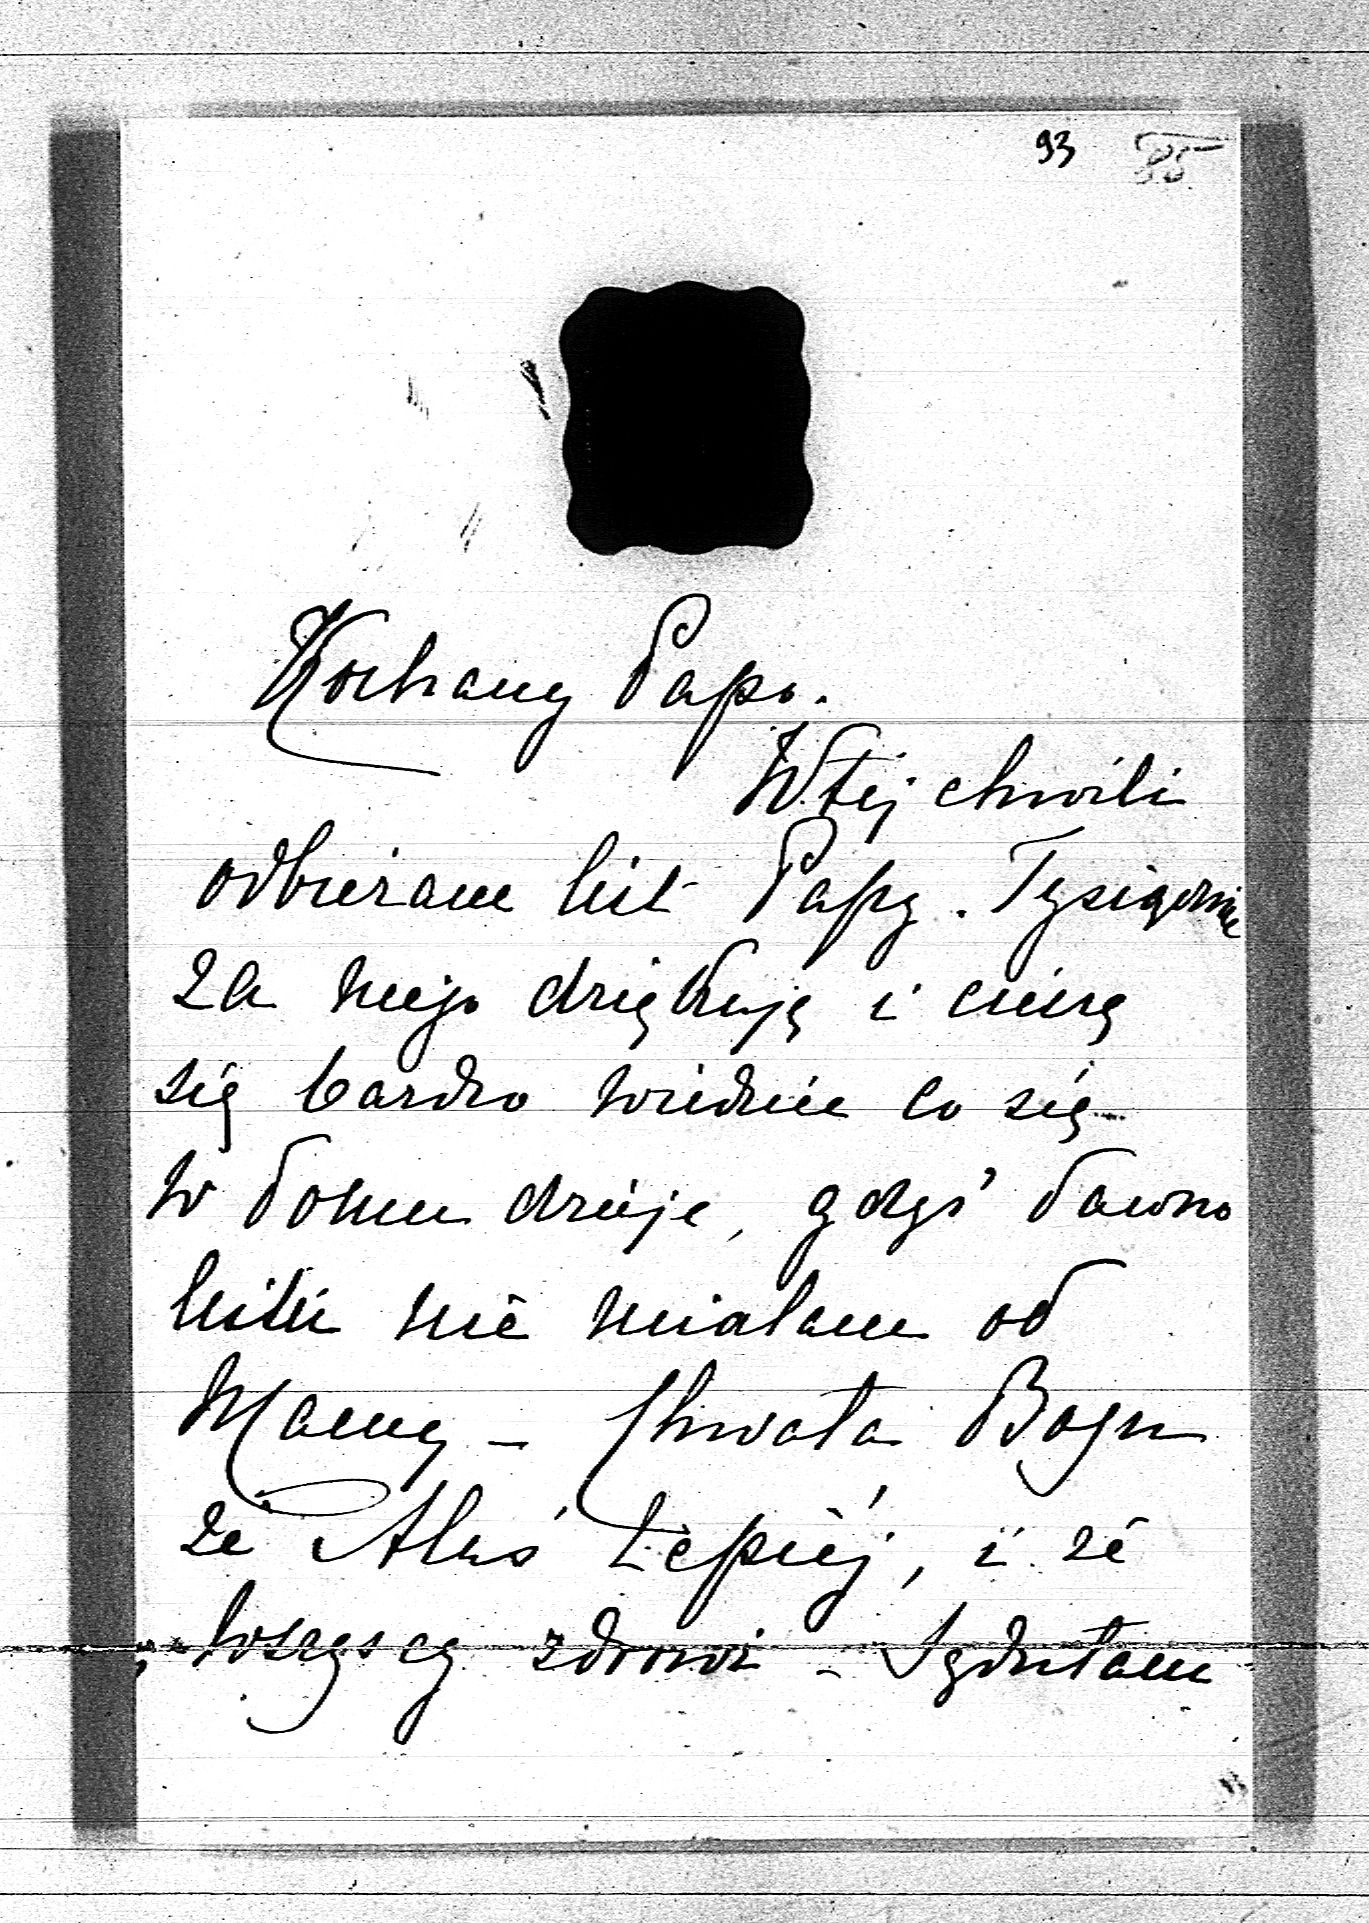 93 85
Kochany Papo.
W tej chwili
odbieram list Papy. Tysiącznie
za niego dziękuję i cieszę
się bardzo wiedzieć co się
w domu dzieje, gdyż dawno
listu nie miałam od
Mamy – Chwała Bogu
że Aluś lepiej, i że
wszyscy zdrowi –